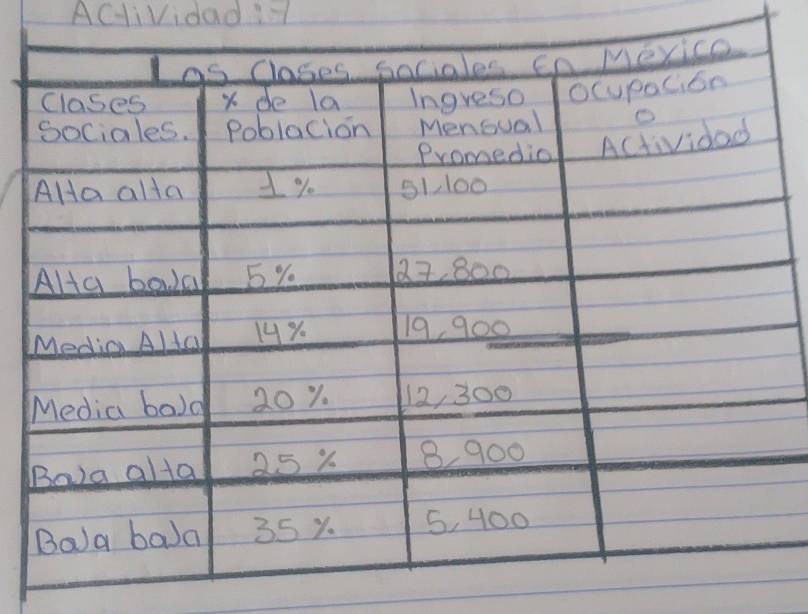 Actividad: 7
Las Clases Sociales En México
Clases Sociales. % de la Población Ingreso Mensual Promedio Ocupación o Actividad
Alta alta 1% 51,100
Alta baja 5% 27,800
Media Alta 14% 19,900
Media baja 20% 12,300
Baja alta 25% 8,900
Baja baja 35% 5,400